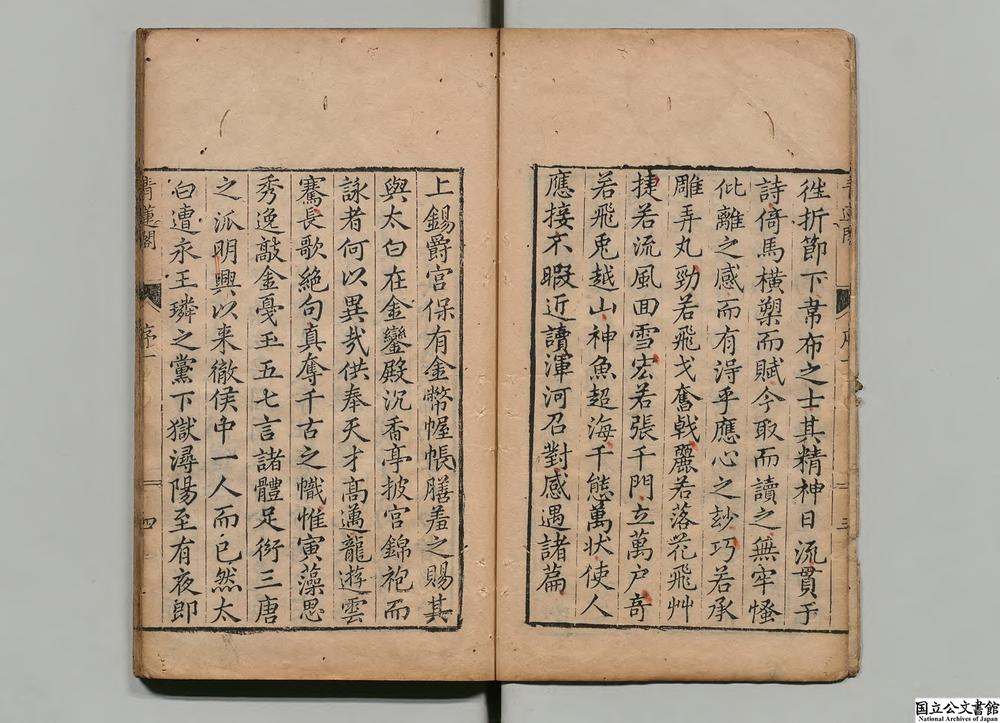 徃折節下韋布之士其精神日流貫于
詩倚馬橫槊而賦今取而讀之無牢慅
仳離之感而有淂乎應心之玅巧若承
雕弄丸勁若飛戈奮戟麗若落花飛艸
捷若流風回雪宏若張千門立萬户竒
若飛兎越山神魚超海千態萬狀使人
應接不暇近讀渾河召對感遇諸篇
上錫爵宮保有金幣幄帳膳羞之賜其
與太白在金鑾殿沉香亭披宮錦袍而
詠者何以異㦲供奉天才高邁龍遊雲
騫長歌絶句真奪千古之幟惟寅藻思
秀逸敲金戞玉五七言諸體足衍三唐
之派明興以来徹侯中一人而已然太
白遭永王璘之黨下獄潯陽至有夜郎
青蓮閣 序一 四
国立公文書館
National Archives of Japan